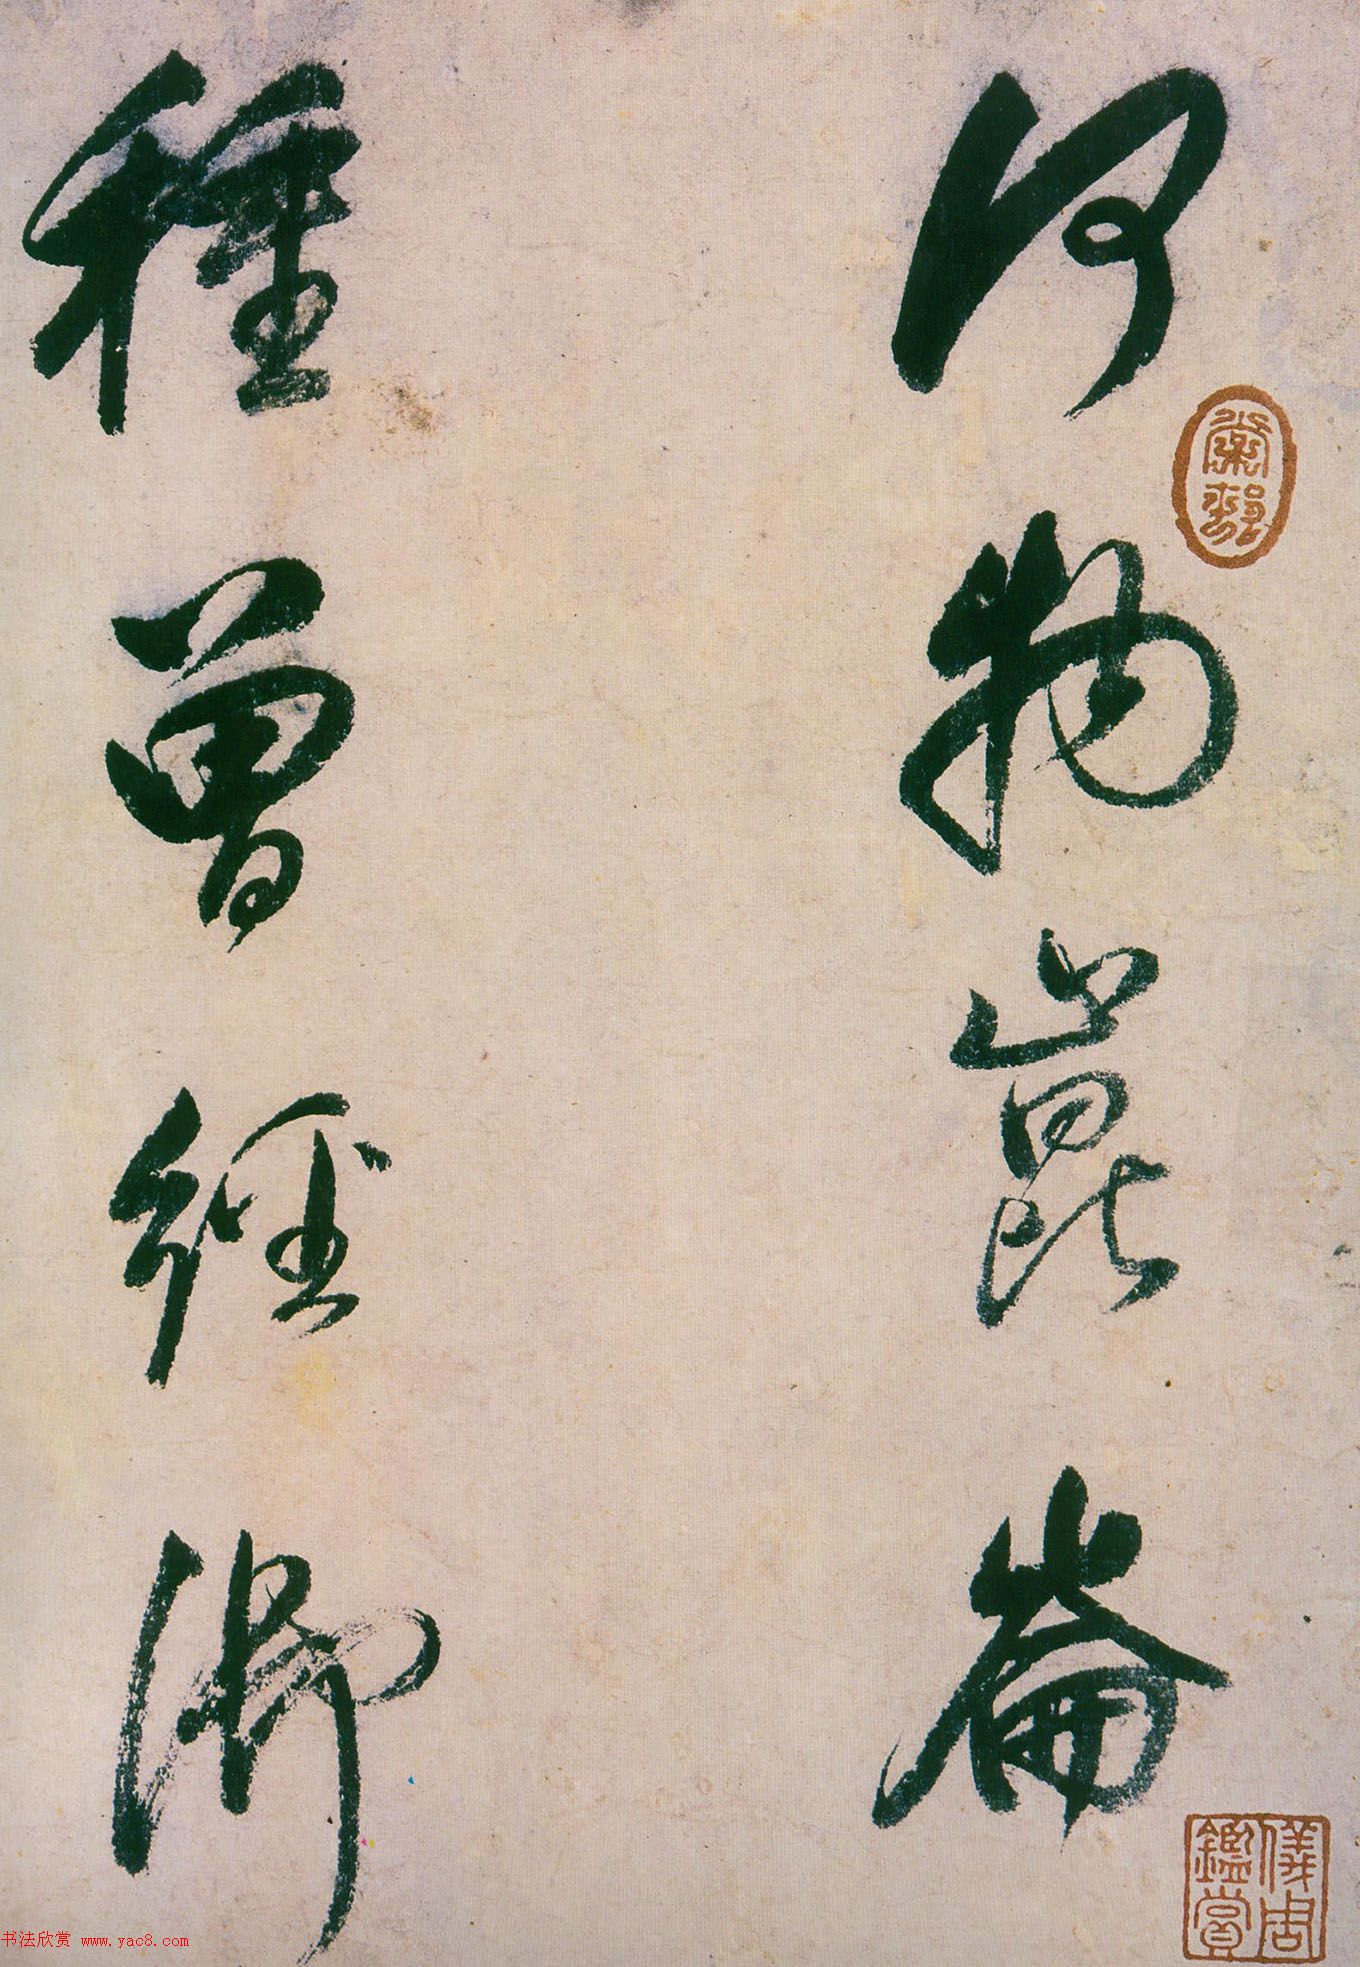 何物崑崙
種曾經御
儀周鑑賞
书法欣赏 www.yac8.com